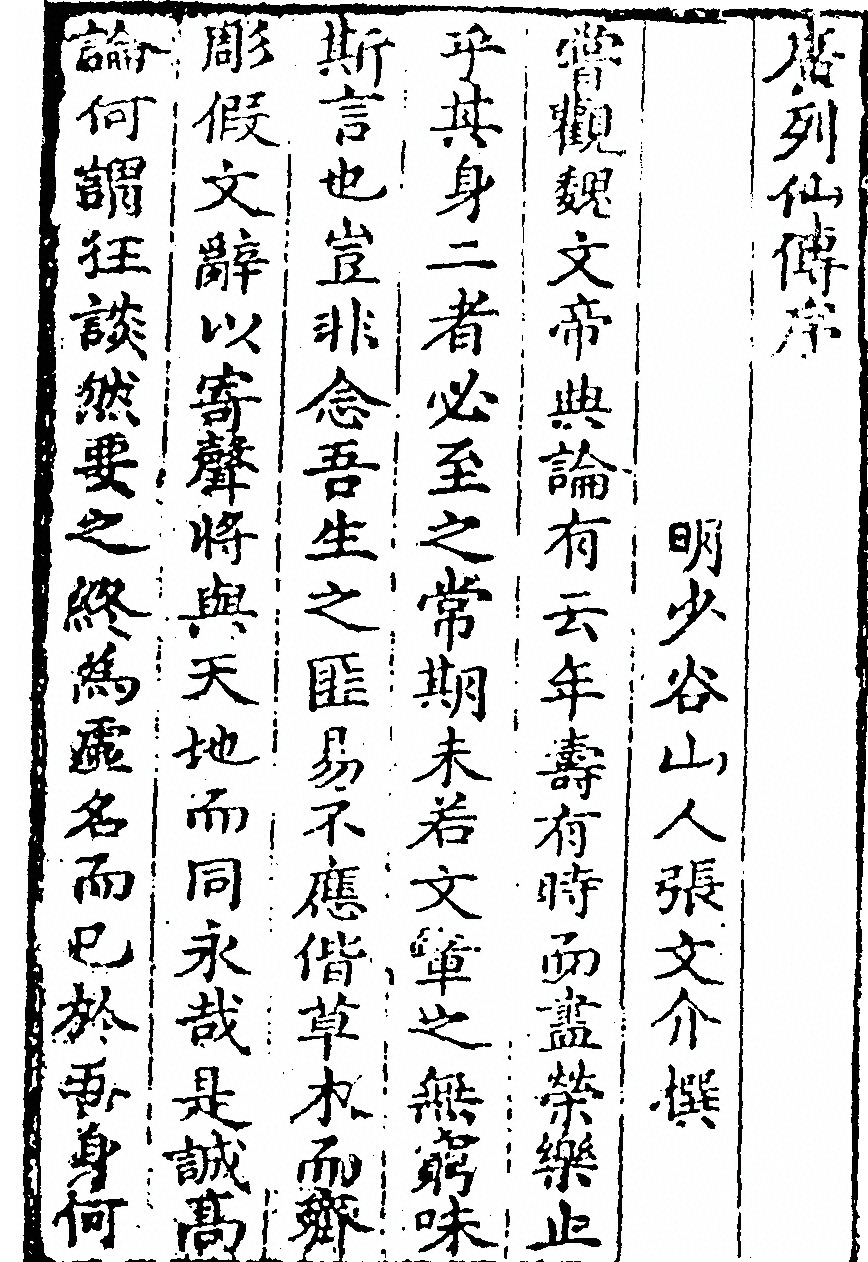 廣列仙傳序
明少谷山人張文介撰
嘗觀魏文帝典論有云年壽有時而盡榮樂止
乎其身二者必至之常期未若文章之無窮味
斯言也豈非念吾生之匪易不應偕草木而齊
彫假文辭以寄聲將與天地而同永哉是誠高
論何謂狂談然要之終為虛名而已於吾身何